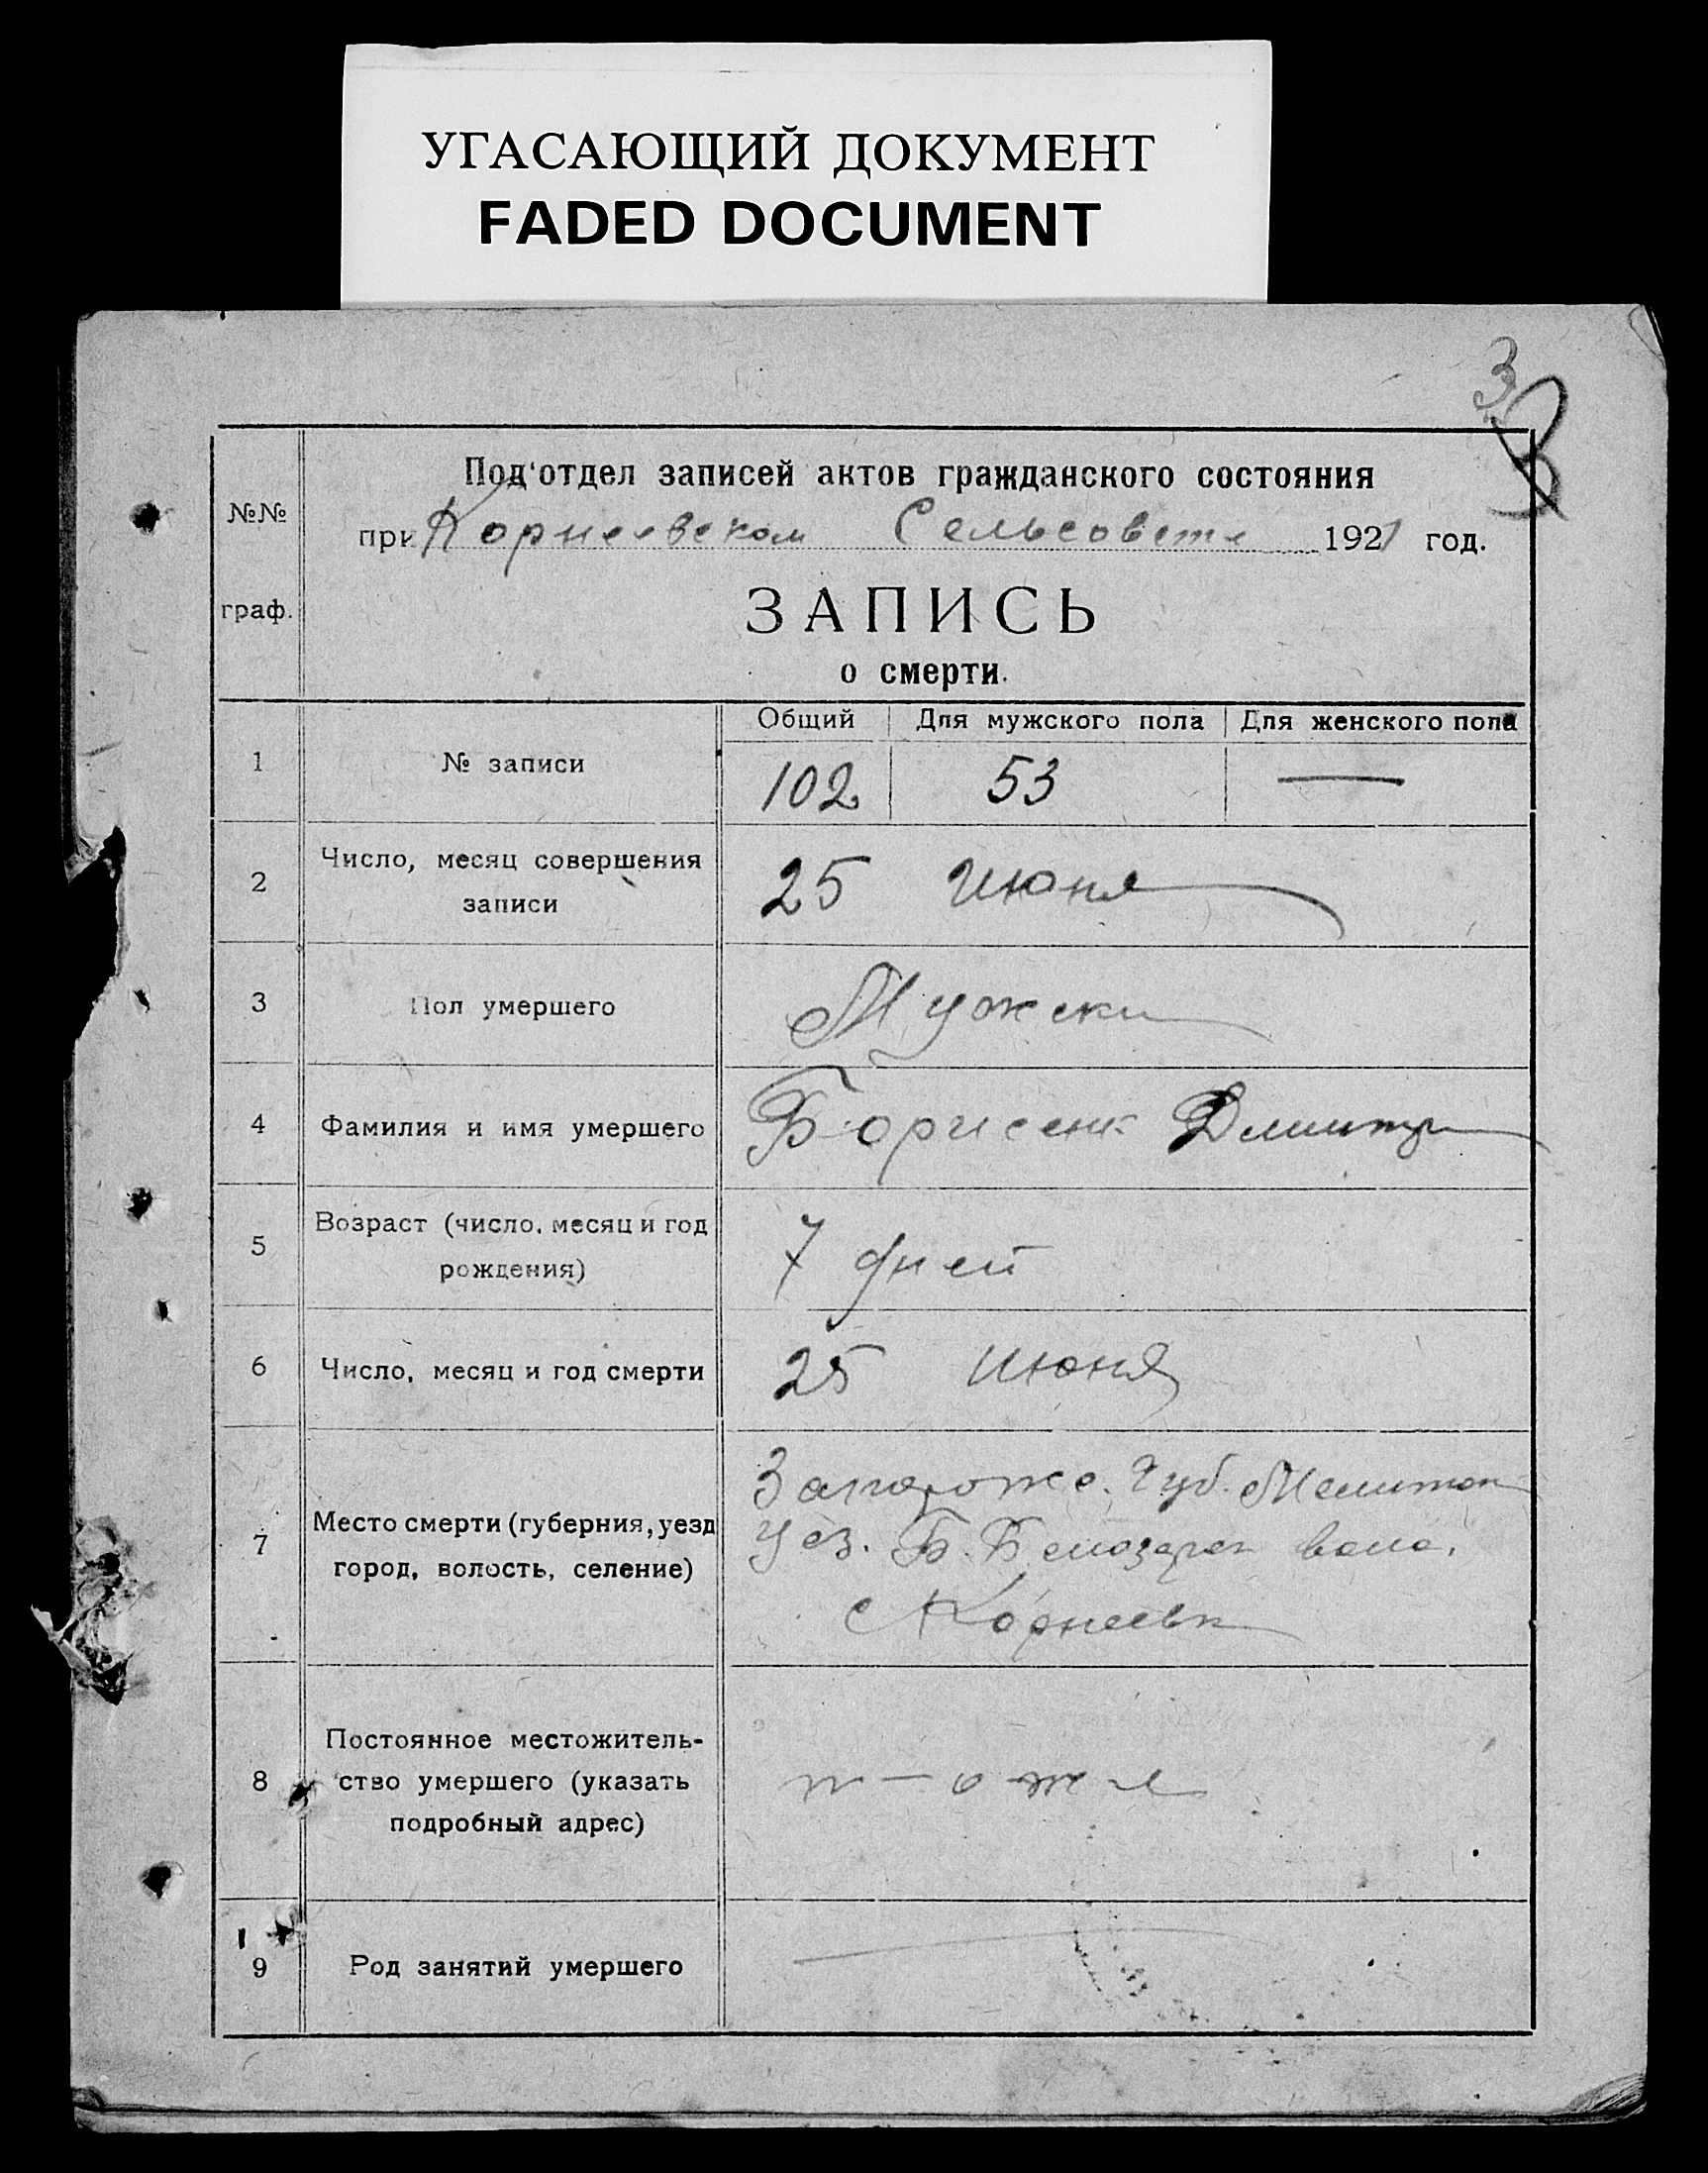 УГАСАЮЩИЙ ДОКУМЕНТ
FADED DOCUMENT
3
3
№№
граф.
Под'отдел записей актов гражданского состояния
при Корнеевском Сельсовете 1921 год.
ЗАПИСЬ
о смерти.
Общий Для мужского пола Для женского пола
1 № записи 102 53 —
2 Число, месяц совершения
записи
25 Июня
3 Пол умершего Мужски
4 Фамилия и имя умершего Борисенк Дмитр
5 Возраст (число, месяц и год
рождения)
7 дней
6 Число, месяц и год смерти 25 июня
7 Место смерти (губерния, уезд
город, волость, селение)
Запорожс. Губ. Мелитоп
Уез. Б. Белозерск воло.
с Корнеевк
8 Постоянное местожитель-
ство умершего (указать
подробный адрес)
т-оже
9 Род занятий умершего